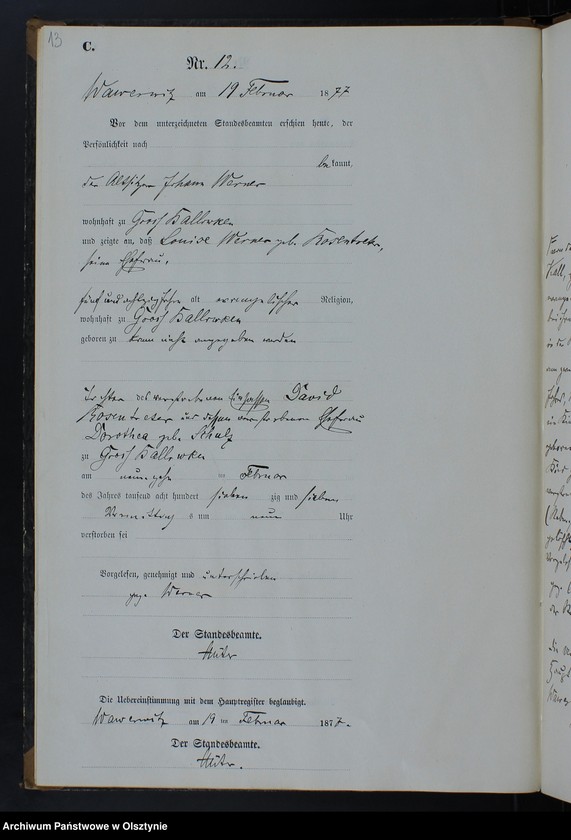 13
C.
Nr. 12.
Wawerwitz am 19 Februar 1877
Vor dem unterzeichneten Standesbeamten erschien heute, der
Persönlichkeit nach
bekannt,
der Altsitzer Johann Werner
wohnhaft zu Gross Ballowken
und zeigte an, daß Louise Werner geb. Rosentreter,
seine Ehefrau,
fünf und achtzig Jahre alt evangelischer Religion,
wohnhaft zu Gross Ballowken
geboren zu kann nicht angegeben werden
Tochter des verstorbenen Einsassen David
Rosentreter und dessen verstorbenen Ehefrau
Dorothea geb. Schulz
zu Gross Ballowken
am neunzehn ten Februar
des Jahres tausend acht hundert sieben zig und sieben
Vormittags um neun Uhr
verstorben sei
Vorgelesen, genehmigt und unterschrieben
gez. Werner
Der Standesbeamte.
Die Uebereinstimmung mit dem Hauptregister beglaubigt.
Wawerwitz am 19 ten Februar 1877.
Der Standesbeamte.
Archiwum Państwowe w Olsztynie